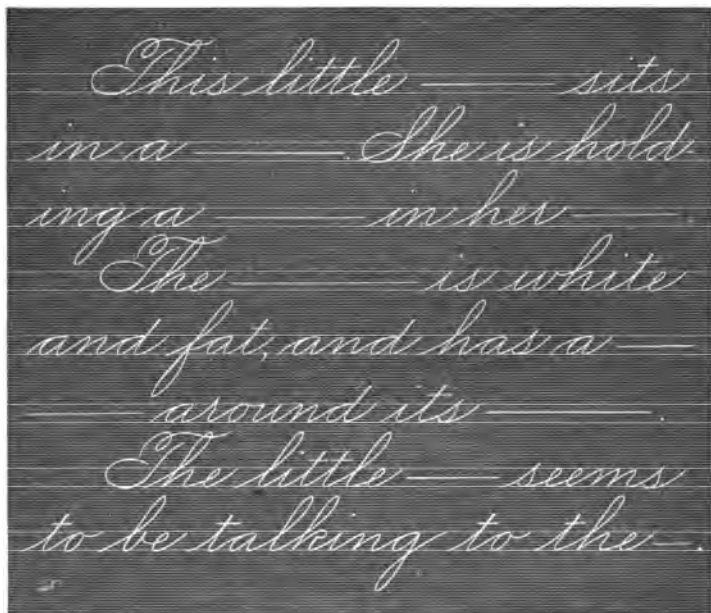 This little ——— sits
in a ———. She is hold
ing a ——— in her ——.
The ——— is white
and fat, and has a —
—— around its ———.
The little —— seems
to be talking to the —.